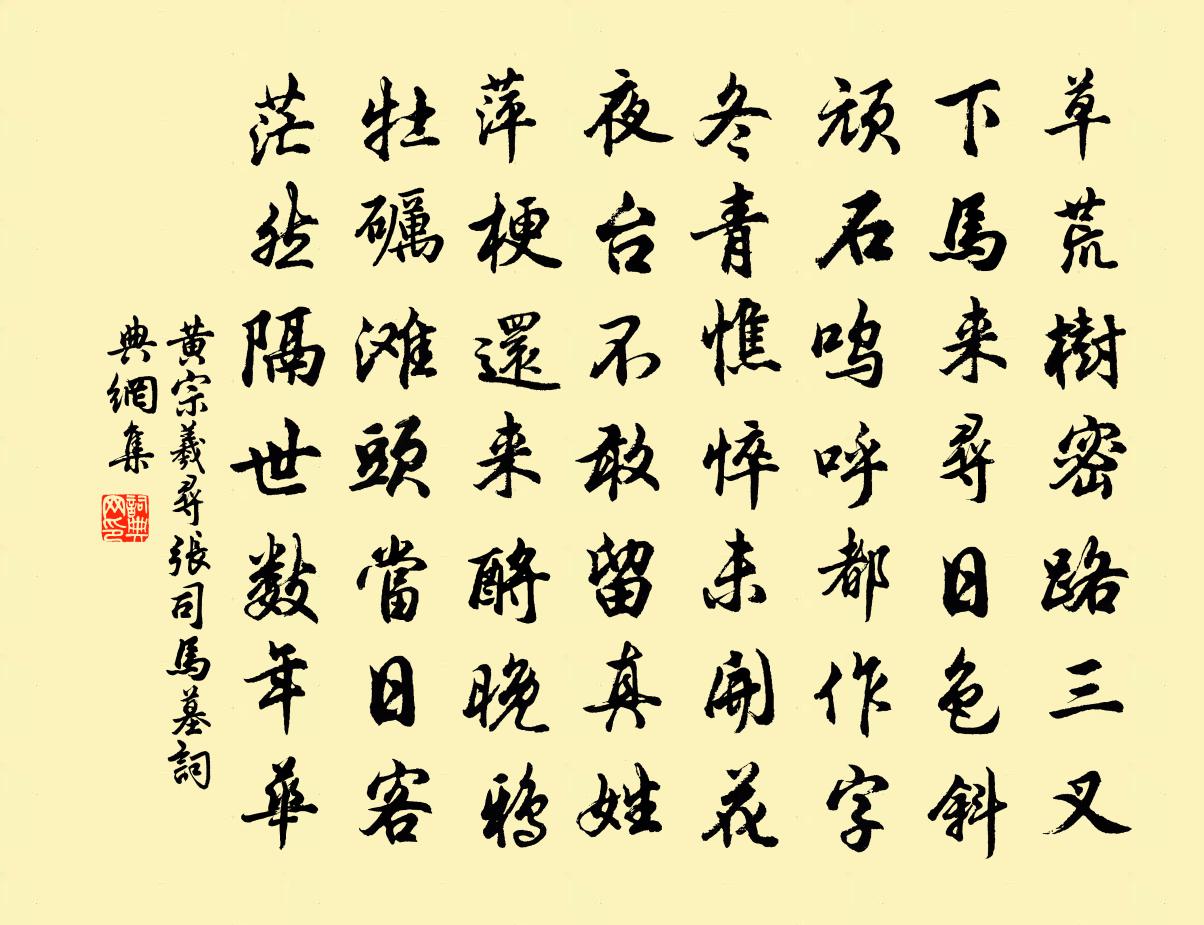 草荒樹密路三叉
下馬来尋日色斜
頑石鸣呼都作字
冬青憔悴未開花
夜台不敢留真姓
萍梗還来酹晚鴉
牡礪滩頭當日客
茫然隔世数年華
黄宗羲尋張司馬墓詞
典網集
詞典
网印